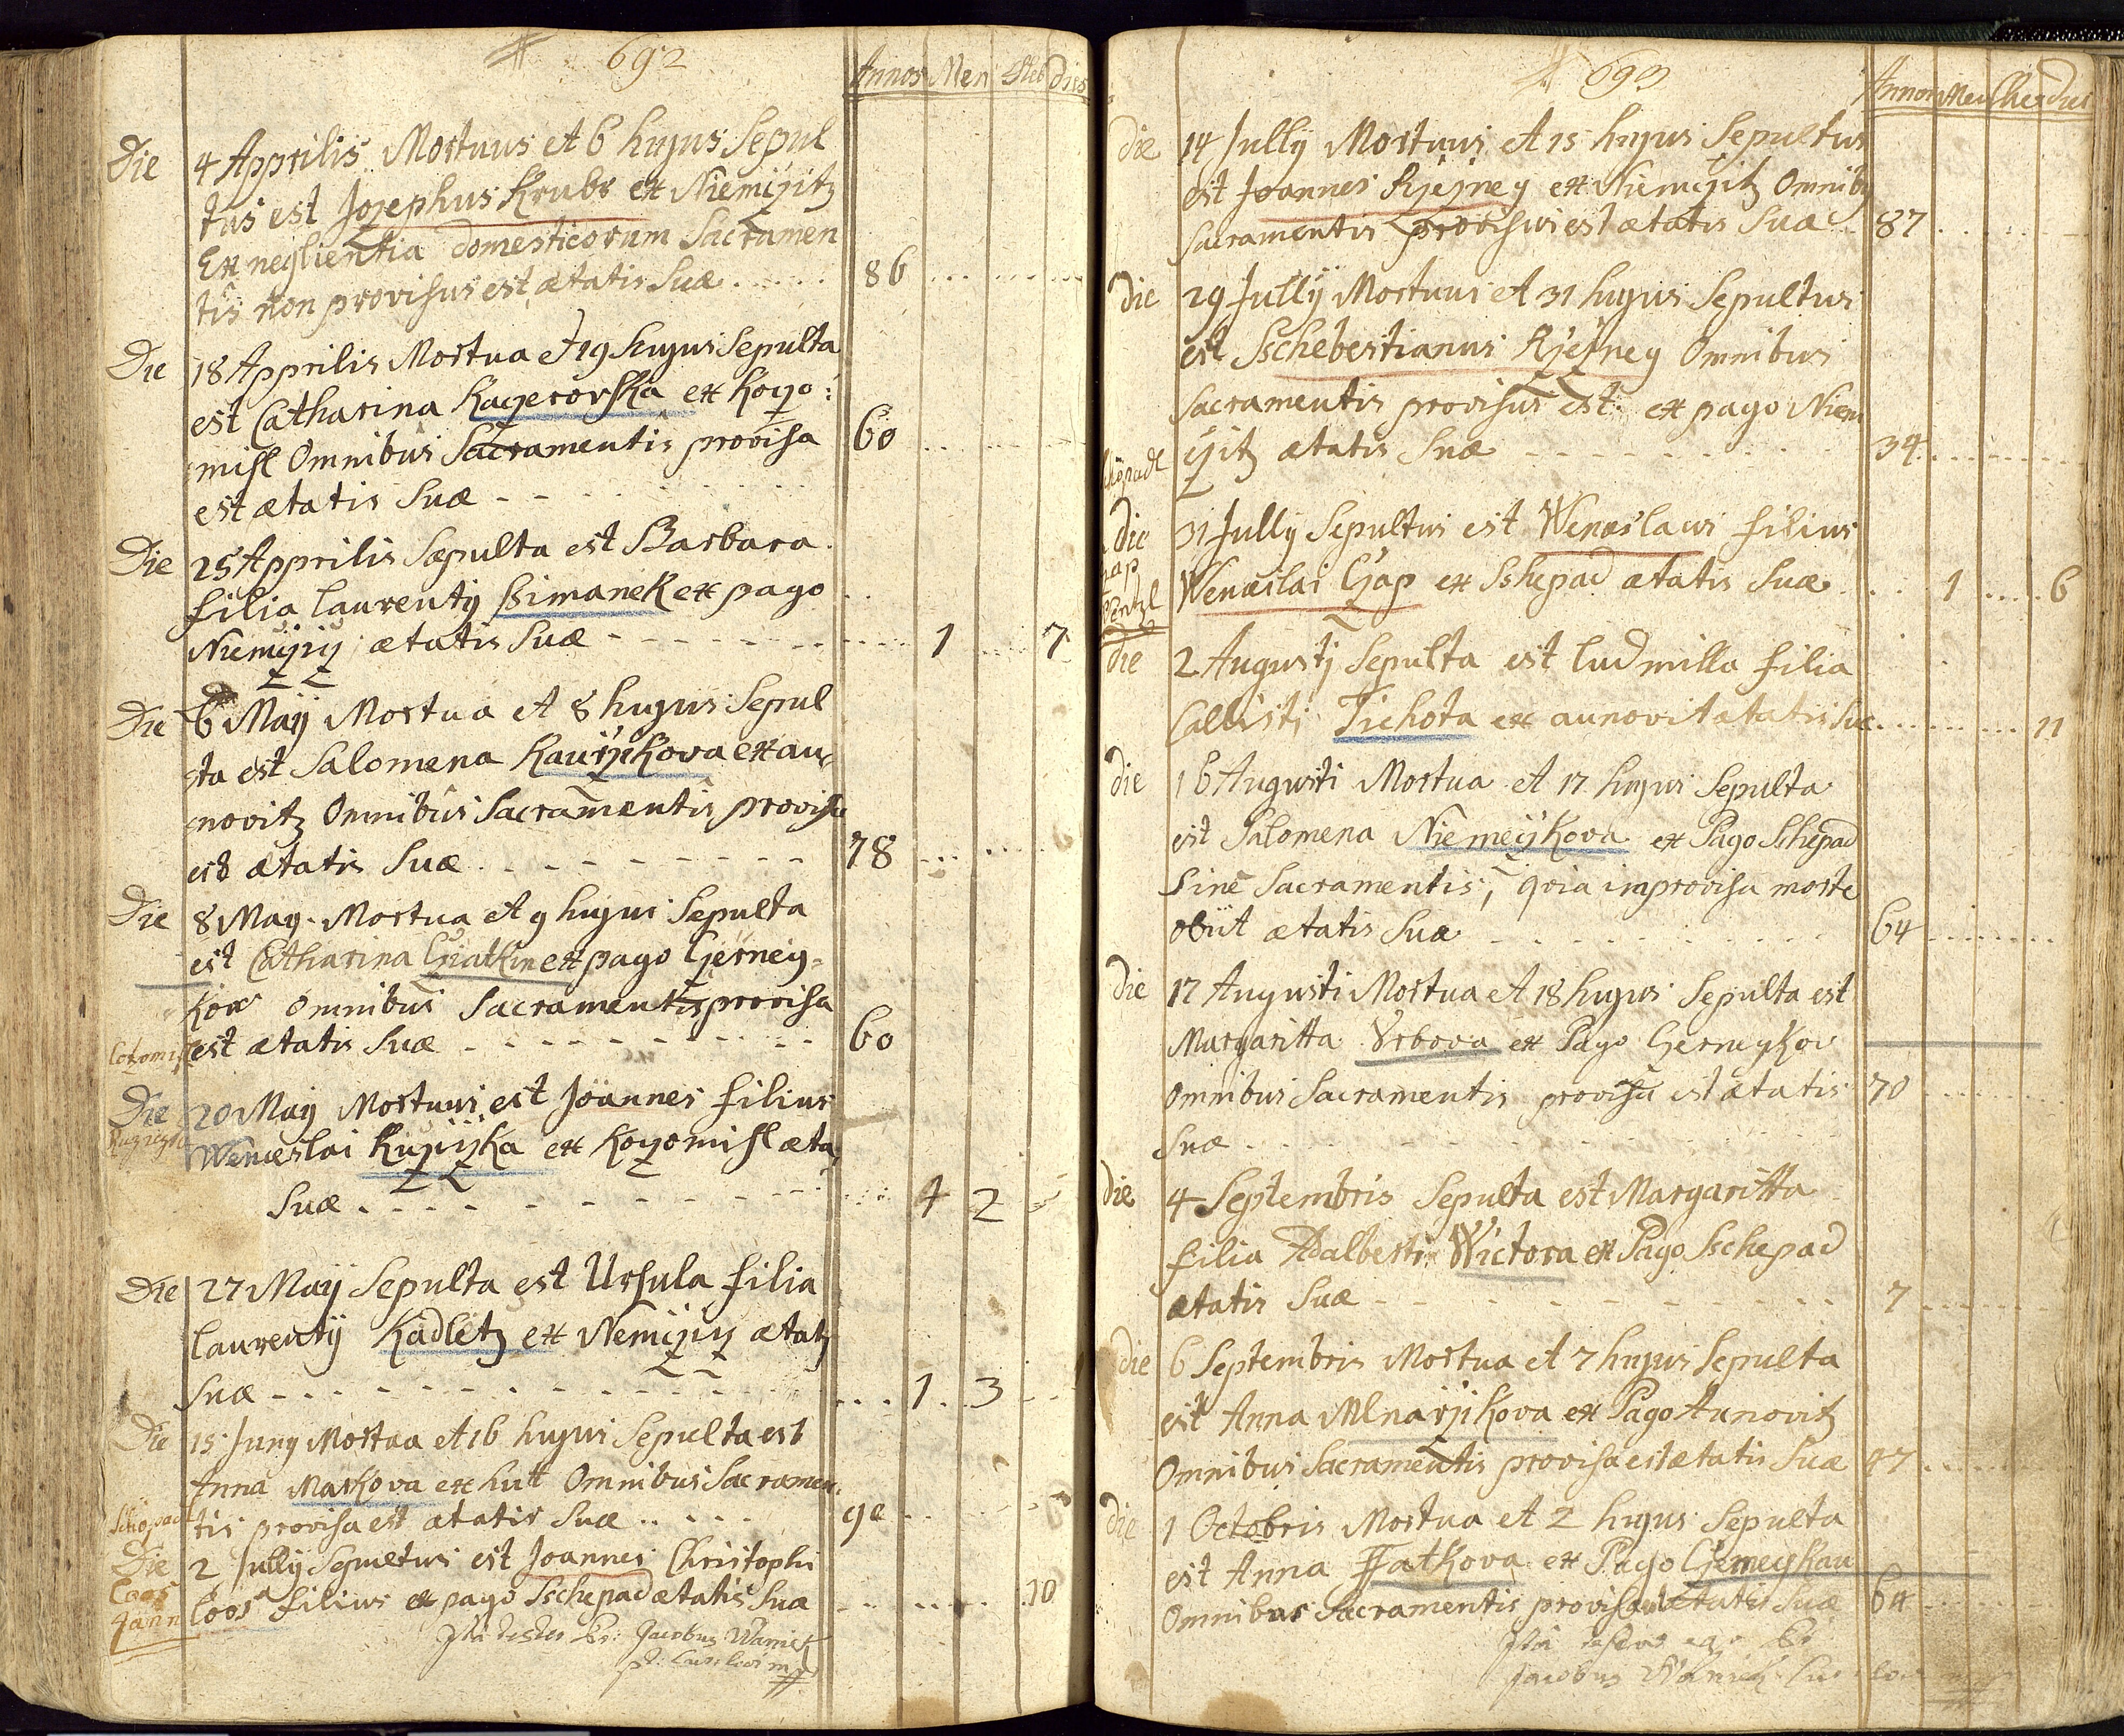 692
Annos Men Heb dies
Die 4 Apprilis Mortuus et 6 hujus Sepul
tus est Jozephus Krubr ex Niemizitz
Ex neglientia domesticorum Sacramen
tis non provisus est ætatis Suæ 86
Die 18 Apprilis Mortua et 19 hujus Sepulta
est Catharina Kayerovska ex Kozo:
misl Omnibus Sacramentis provisa 60
est ætatis Suæ
Die 25 Apprilis Sepulta est Barbara
filia laurentij Ssimanek ex pago
Niemijzij ætatis Suæ 1 7
Die 6 Maij Mortua et 8 hujus Sepul
ta est Salomena Kaurzikova ex au
novitz Omnibus Sacramentis provisa
est ætatis Suæ 78
Die 8 May Mortua et 9 hujus Sepulta
est Catharina ex pago Czerney
kow Omnibus Sacramentis provisa
est ætatis Suæ 60
Die 20 May Mortuus est Joannes filius
Wenceslai Kuzijzka ex Kozomisl æta
Suæ 4 2
Die 27 Maij Sepulta est Ursula filia
laurentij Kadletz ex Nemizij ætatis
Suæ 1 3
Die 15 Juny Mortua et 16 hujus Sepulta est
Anna Markova ex hutt Omnibus Sacramen
tis provisa est ætatis Suæ
Schöpadl
Die 2 Jully Sepultus est Joannes Christophi
Coos
Jann
Coos filius ex pago Sschepad ætatis Suæ 10
Jta testor Jacobus Waniek
693
Annos Men Heb dies
die 14 Jully Mortuus et 15 hujus Sepultus
est Joannes Rzezney ex Niemizitz Omnibus
Sacramentis provisus est ætatis Suæ 87
die 29 Jullÿ Mortuus et 31 hujus Sepultus
est Sschebestianus Rzezney Omnibus
Sacramentis provisus est ex pago Niem
izitz ætatis Suæ 34
die 31 Jully Sepultus est Wenæslaus filius
Wenæslai Czap ex Sshepad ætatis Suæ 1 6
die 2 Augustj Sepulta est ludmilla filia
Callisti Tichota ex aunovit ætatis Suæ 11
die 16 Augusti Mortua et 17 hujus Sepulta
est Salomena Niemeijkova ex Pago Schepad
Sine Sacramentis, qvia improvisa morte
obiit ætatis Suæ 64
die 17 Augusti Mortua et 18 hujus Sepulta est
Margaritta Vrbova ex Pago Czerneykow
Omnibus Sacramentis provisa est ætatis 70
Suæ
die 4 Septembris Sepulta est Margaritta
filia Adalberti Wictora ex Pago Sschepad
ætatis Suæ 7
die 6 Septembris Mortua et 7 hujus Sepulta
est Anna Mlnarzikova ex Pago Aunovitz
Omnibus Sacramentis provisa est ætatis Suæ 47
die 1 Octobris Mortua et 2 hujus Sepulta
est Anna Fatkova ex Pago Czerneykau
Omnibus Sacramentis provisa est ætatis Suæ 64
Jacobus Waniek